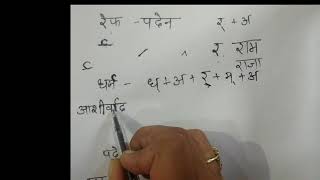 रेफ - पदेन र् + अ
र राम
राजा
धर्म - ध् + अ + र् + म् + अ
आशीर्वाद
पदे